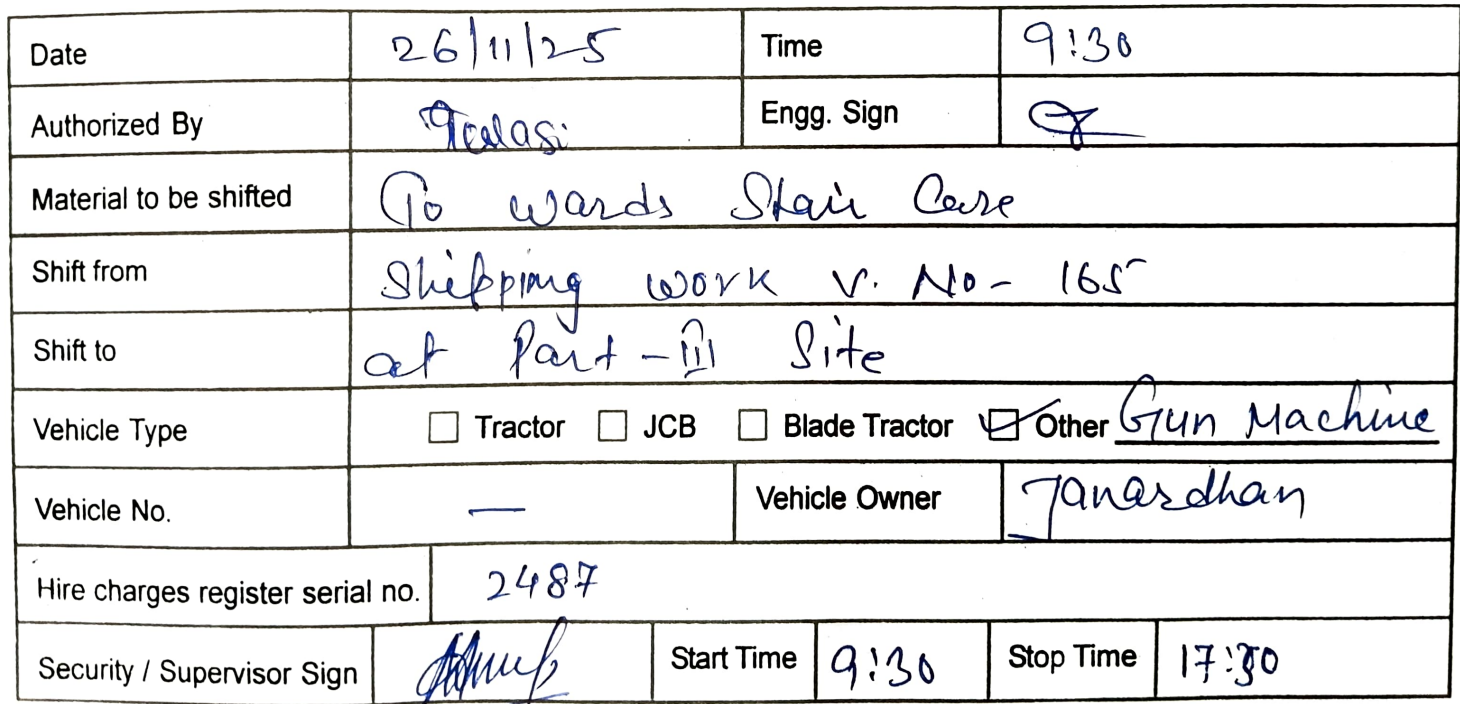 Date 26/11/25 Time 9:30
Authorized By Tulasi Engg. Sign
Material to be shifted To wards Stair Case
Shift from Shipping work V. No- 165
Shift to at Part-III Site
Vehicle Type Tractor JCB Blade Tractor Other Gun Machine
Vehicle No. — Vehicle Owner Janardhan
Hire charges register serial no. 2487
Security / Supervisor Sign Start Time 9:30 Stop Time 17:30